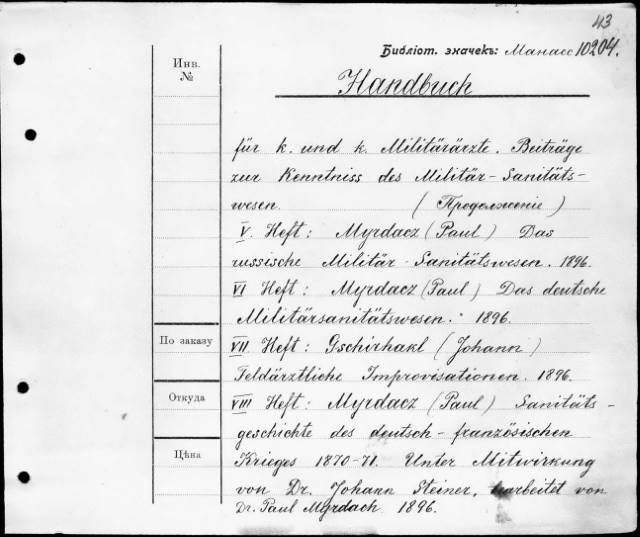 43
Библіот. значекъ: Манасс 10204.
Инв.
№
Handbuch
für k. und k. Militärärzte. Beiträge
zur Kenntniss des Militär-Sanitäts-
wesen. (Продолженіе)
V. Heft: Myrdacz (Paul) Das
russische Militär-Sanitätswesen. 1896.
VI Heft: Myrdacz (Paul) Das deutsche
Militärsanitätswesen. 1896.
По заказу
VII Heft: Gschirhakl (Johann)
Feldärztliche Improvisationen. 1896.
Откуда
VIII Heft: Myrdacz (Paul) Sanitäts-
geschichte des deutsch-französischen
Цѣна
Krieges 1870-71. Unter Mitwirkung
von Dr. Johann Steiner, bearbeitet von
Dr. Paul Myrdach 1896.